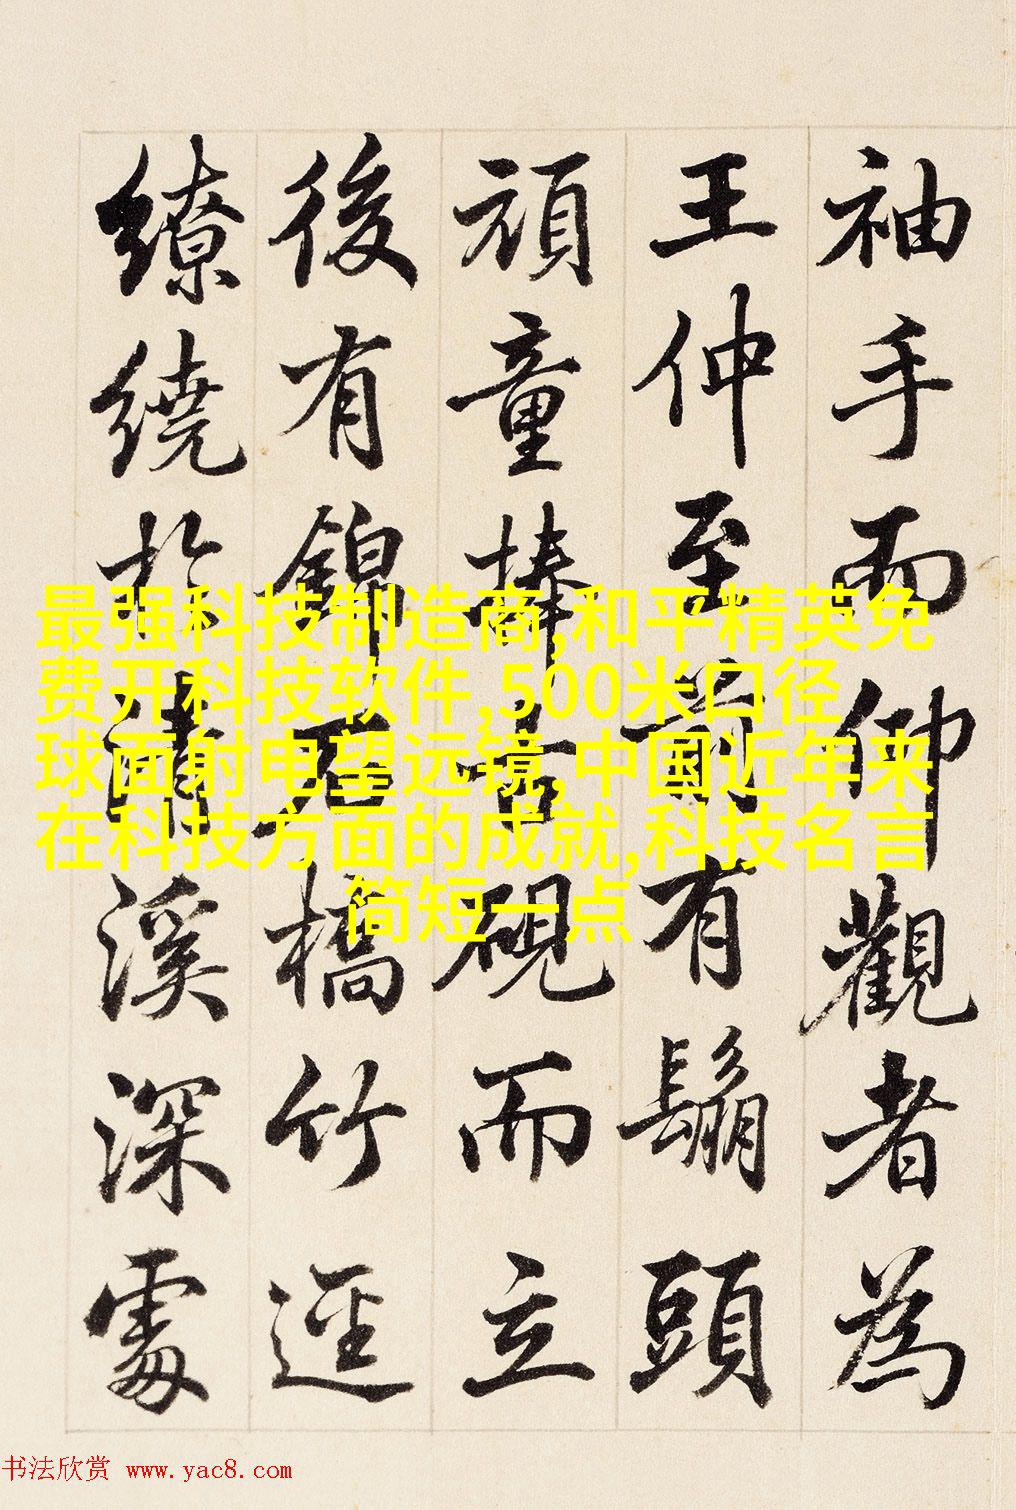 袖手而仰觀者為
王仲至前有鬅頭
頑童捧古硯而立
後有錦石橋竹逕
繚繞於清溪深處
最强科技制造商,和平精英免
费开科技软件,500米口径
球面射电望远镜,中国近年来
在科技方面的成就,科技名言
简短一点
书法欣赏 www.yac8.com